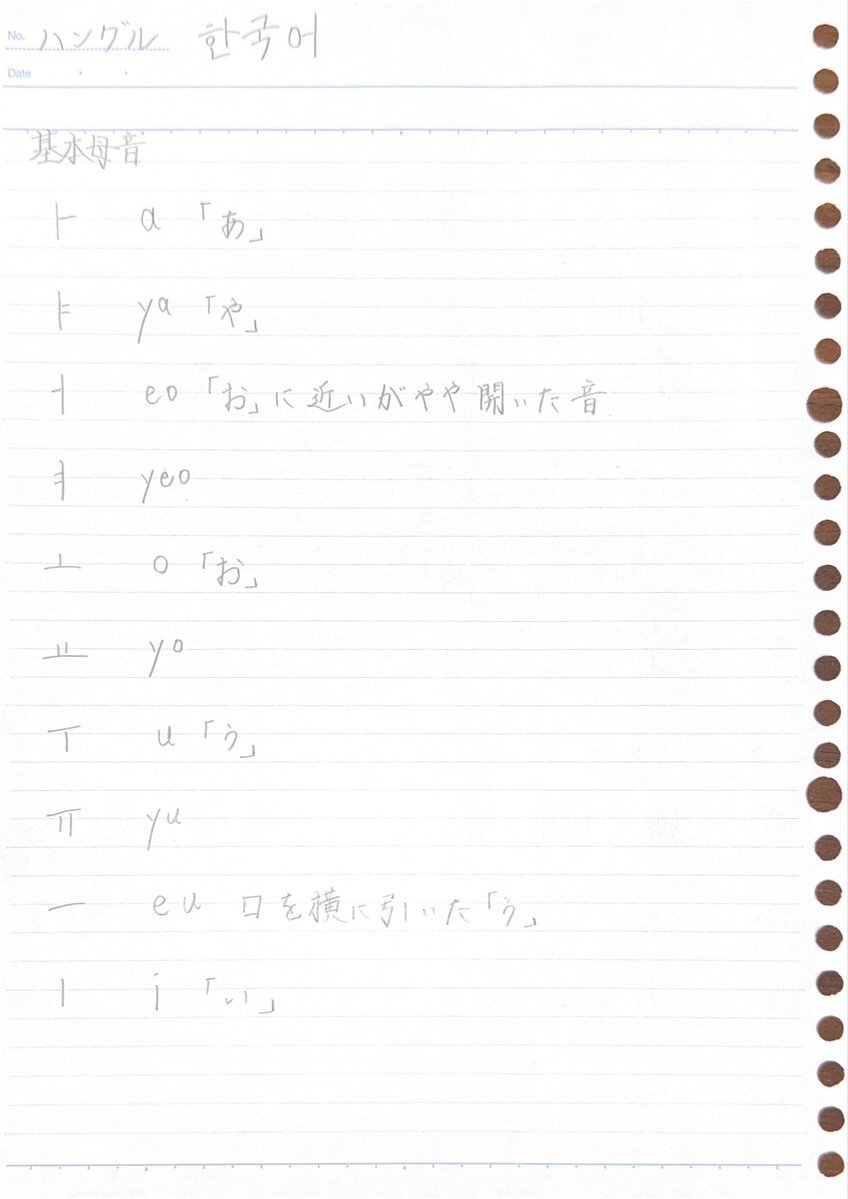 No. ハングル 한국어
Date
基本母音
ㅏ a 「あ」
ㅑ ya 「や」
ㅓ eo 「お」に近いがやや開いた音
ㅕ yeo
ㅗ o 「お」
ㅛ yo
ㅜ u 「う」
ㅠ yu
ㅡ eu 口を横に引いた「う」
ㅣ i 「い」